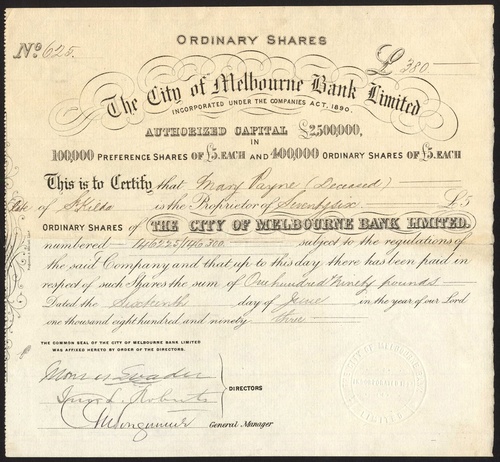 ORDINARY SHARES
No. 625.
£ 380
The City of Melbourne Bank Limited
INCORPORATED UNDER THE COMPANIES ACT, 1890.
AUTHORIZED CAPITAL £2,500,000,
IN
100,000 PREFERENCE SHARES OF £5. EACH AND 400,000 ORDINARY SHARES OF £5. EACH
This is to Certify that Mary Payne (Deceased)
late of St Kilda is the Proprietor of Seventysix £5
ORDINARY SHARES OF THE CITY OF MELBOURNE BANK LIMITED.
numbered 146225/146300 subject to the regulations of
the said Company and that up to this day there has been paid in
respect of such Shares the sum of One hundred & Ninety pounds
Dated the Sixteenth day of June in the year of our Lord
one thousand eight hundred and ninety three
THE COMMON SEAL OF THE CITY OF MELBOURNE BANK LIMITED
WAS AFFIXED HERETO BY ORDER OF THE DIRECTORS.
DIRECTORS
Roberts
General Manager
LIMITED